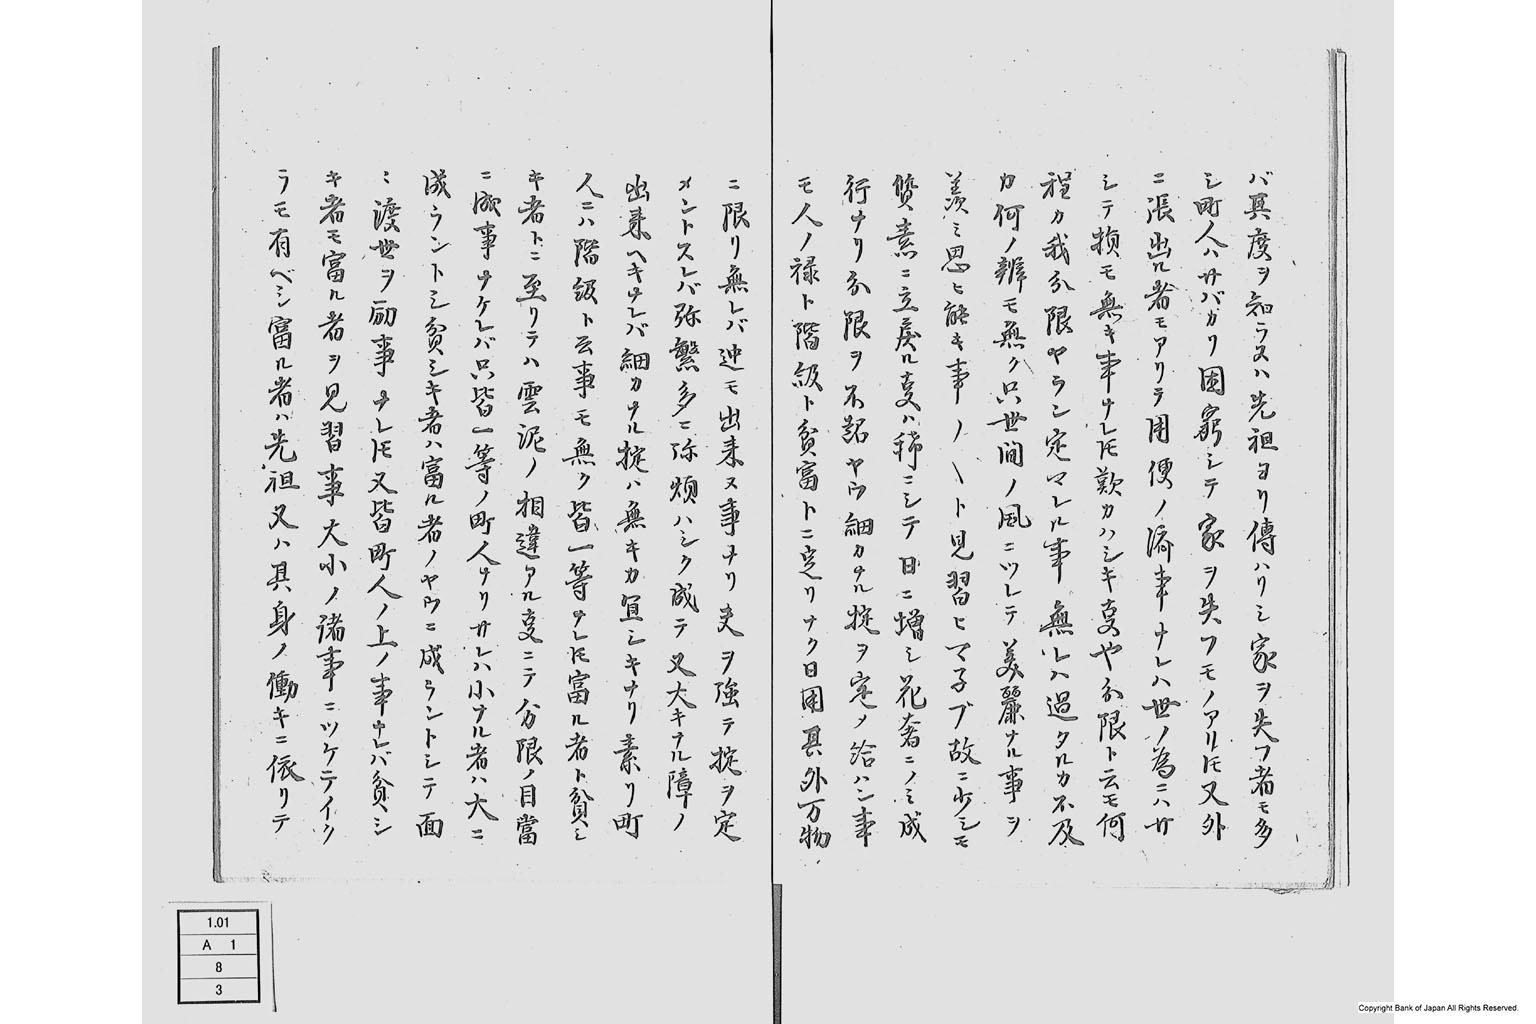 バ其度ヲ知ラスハ先祖ヨリ傳ハリシ家ヲ失フ者モ多
シ町人ハサバカリ困窮シテ家ヲ失フモノアリ𪜈又外
ニ張出ル者モアリテ用便ノ済事ナレハ世ノ為ニハサ
シテ損モ無キ事ナレ𪜈歎カハシキ叓ヤ分限ト云モ何
程カ我分限ヤラン定マレル事無レハ過タルカ不及
カ何ノ辨モ無ク只世間ノ風ニツレテ美麗ナル事ヲ
羨ミ思ヒ能キ事ノ〳〵ト見習ヒマ子ブ故ニ少シモ
質素ニ立戻ル叓ハ稀ニシテ日ニ増シ花奢ニノミ成
行ナリ分限ヲ不踰ヤウ細カナル掟ヲ定メ給ハン事
モ人ノ禄ト階級ト貧富トニ定リナク日用其外万物
ニ限リ無レバ迚モ出来ヌ事ナリ夫ヲ強テ掟ヲ定
メントスレバ弥繁多ニ弥煩ハシク成テ又大キナル障ノ
出来ヘキナレバ細カナル掟ハ無キカ宜シキナリ素リ町
人ニハ階級ト云事モ無ク皆一等ナレ𪜈富ル者ト貧シ
キ者トニ至リテハ雲泥ノ相違アル叓ニテ分限ノ目當
ニ成事ナケレバ只皆一等ノ町人ナリサレハ小ナル者ハ大ニ
成ラントシ貧シキ者ハ富ル者ノヤウニ成ラントシテ面
〻渡世ヲ励事ナレ𪜈又皆町人ノ上ノ事ナレバ貧シ
キ者モ富ル者ヲ見習事大小ノ諸事ニツケテイク
ラモ有ベシ富ル者ハ先祖又ハ其身ノ働キニ依リテ
1.01
A 1
8
3
Copyright Bank of Japan All Rights Reserved.